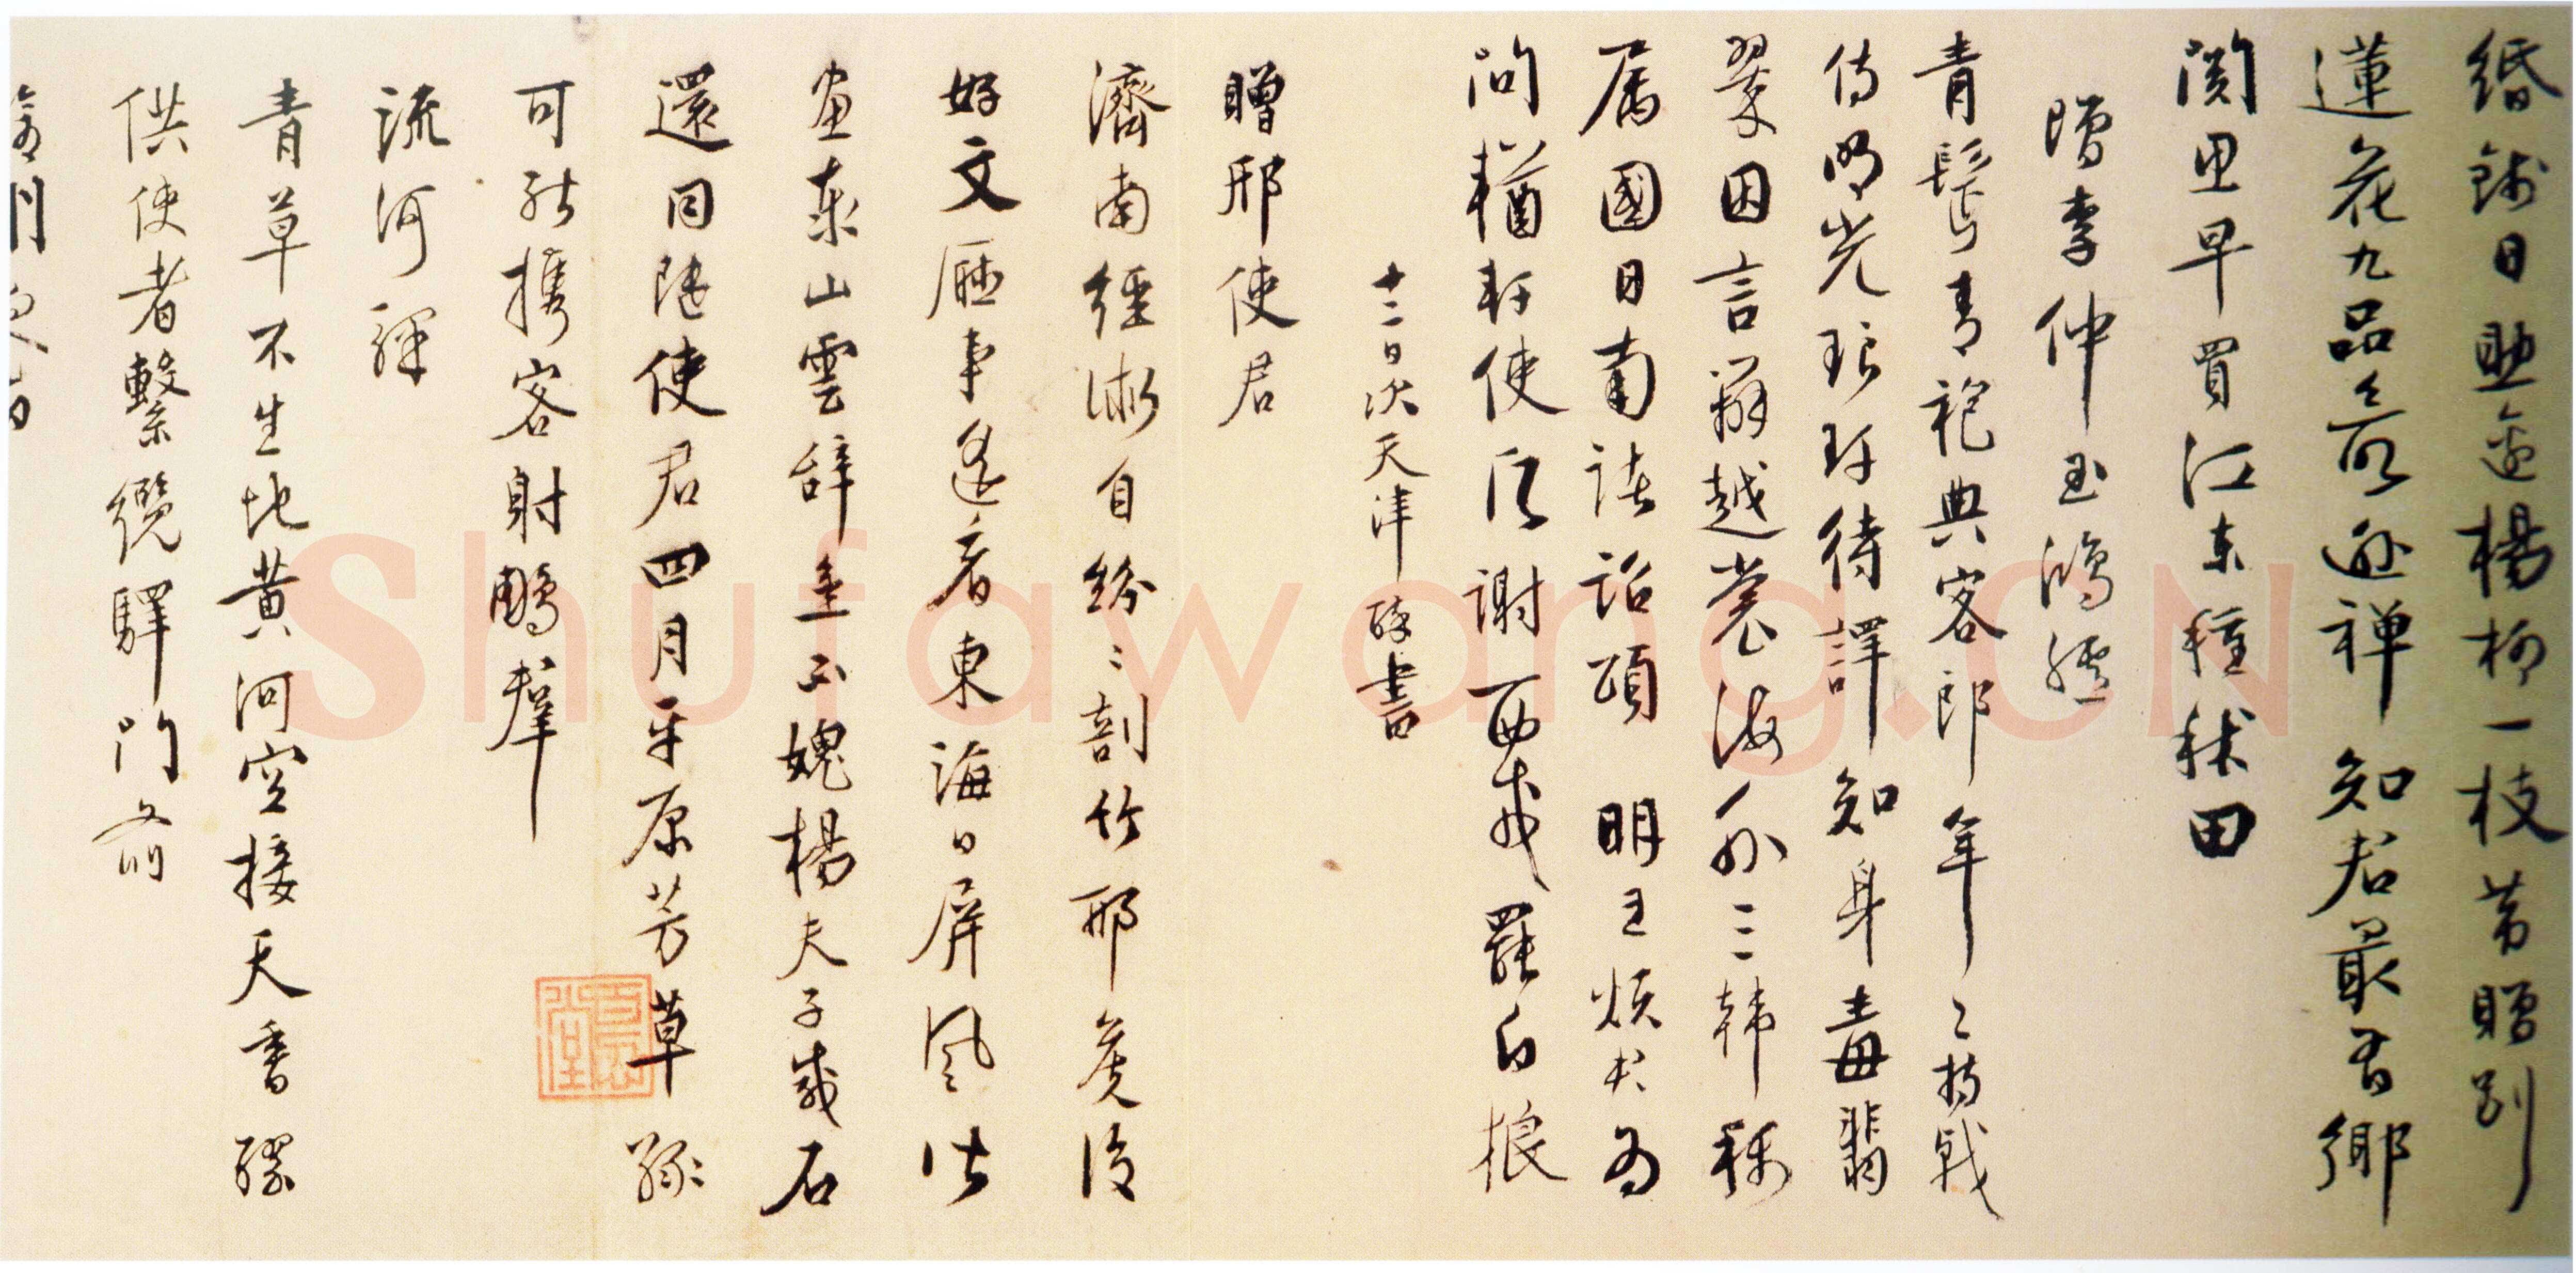 緡錢日興通楊柳一枝苦贈別
蓮花九品最逃禪知君最有鄉
關思早買江東種秫田
贈李仲玉鴻臚
青鬢青袍典客郎年〻持戟
侍明光琅玕待譯知身毒翡
翠因言辨越裳海外三韓稱
屬國日南諸詔頭明王煩君為
問楢軒使后謝西戎罷白狼
十二日次天津醉書
贈邢使君
濟南經術自紛〻剖竹邢侯復
好文歷事遙看東海日屏風皆
畫泰山雲辭金不媿楊夫子載石
還同陸使君四月平原芳草綠
可能攜客射鵰羣
流河驛
青草不生地黃河空接天香醪
供使者繫纜驛門前
Shufawang.CN